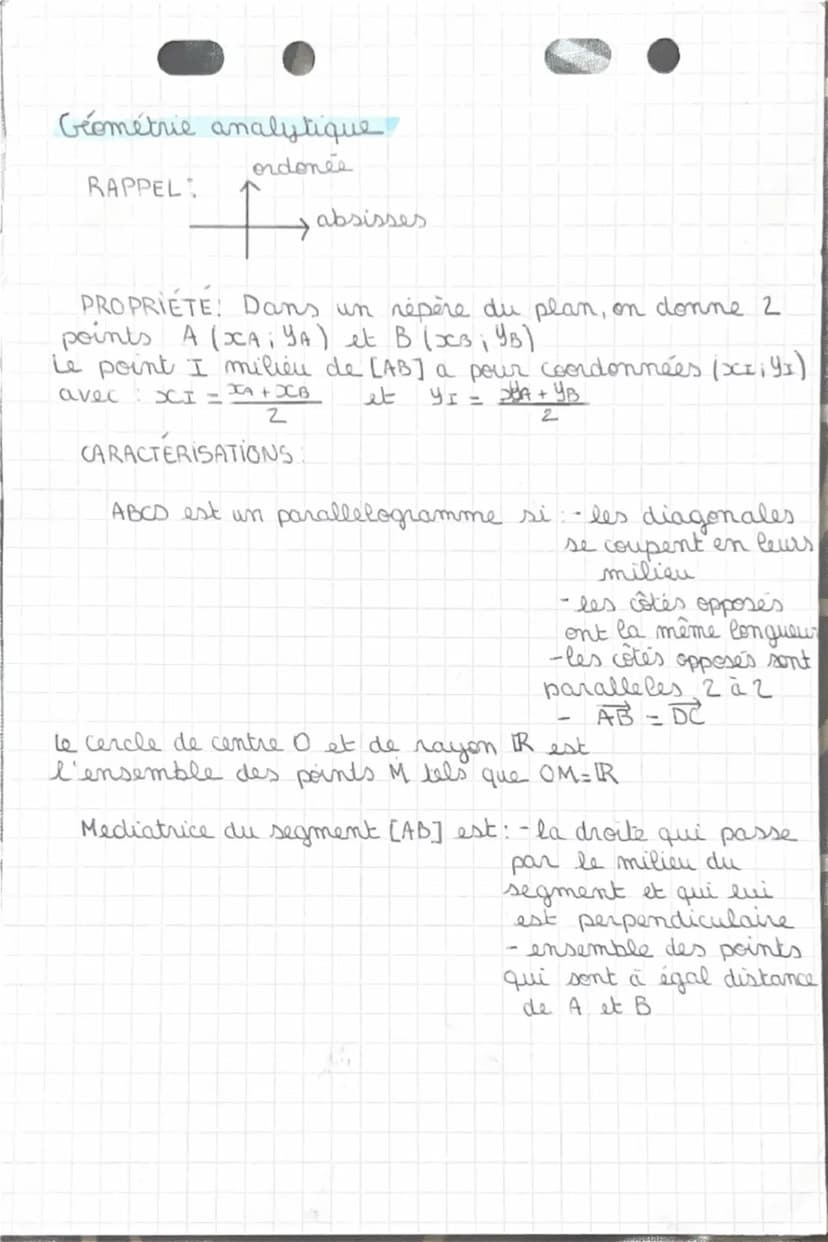 Géométrie analytique
ordonée
RAPPEL:
absisses
PROPRIÉTÉ: Dans un répère du plan, on donne 2
points A (xA ; yA) et B (xB ; yB)
Le point I milieu de [AB] a pour coordonnées (xI ; yI)
avec : xI = (xA + xB)/2 et yI = (yA + yB)/2
CARACTÉRISATIONS:
ABCD est un parallelogramme si : - les diagonales
se coupent en leurs
milieu
- les côtés opposés
ont la même longueur
- les côtés opposés sont
paralleles 2 à 2
- \overrightarrow{AB} = \overrightarrow{DC}
Le cercle de centre O et de rayon ℝ est
l'ensemble des points M tels que OM=ℝ
Mediatrice du segment [AB] est : - la droite qui passe
par le milieu du
segment et qui lui
est perpendiculaire
- ensemble des points
qui sont à égal distance
de A et B